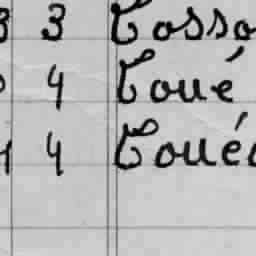 3 3 Tosso
4 Toué
4 4 Toué